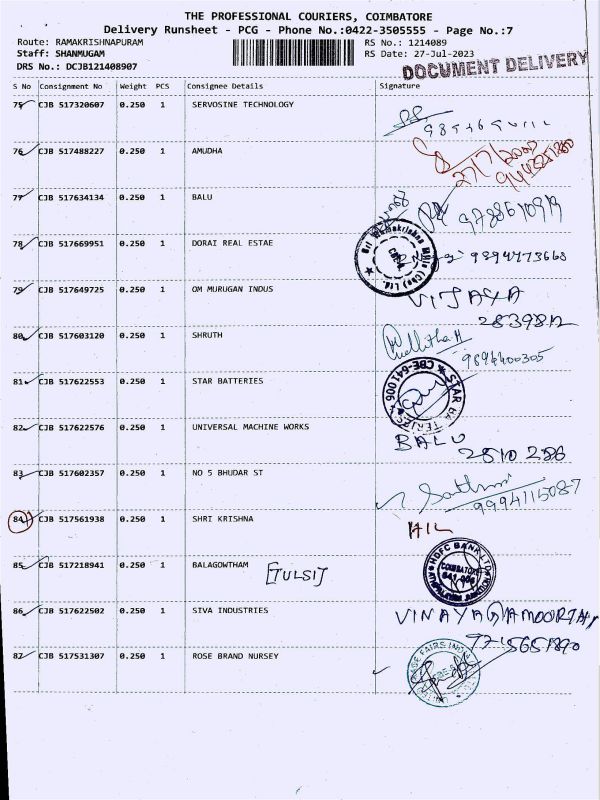 THE PROFESSIONAL COURIERS, COIMBATORE
Delivery Runsheet - PCG - Phone No.:0422-3505555 - Page No.:7
Route: RAMAKRISHNAPURAM RS No.: 1214089
Staff: SHANMUGAM RS Date: 27-Jul-2023
DRS No.: DCJB121408907
DOCUMENT DELIVERY
S No Consignment No Weight PCS Consignee Details Signature
75 CJB 517320607 0.250 1 SERVOSINE TECHNOLOGY
76 CJB 517488227 0.250 1 AMUDHA
27/7/2000
77 CJB 517634134 0.250 1 BALU
78 CJB 517669951 0.250 1 DORAI REAL ESTAE
9894773668
79 CJB 517649725 0.250 1 OM MURUGAN INDUS
VIJAYA
80 CJB 517603120 0.250 1 SHRUTH
9894400305
81 CJB 517622553 0.250 1 STAR BATTERIES
STAR BATTERIES CBE-641006
82 CJB 517622576 0.250 1 UNIVERSAL MACHINE WORKS
BALU
2510 286
83 CJB 517602357 0.250 1 NO 5 BHUDAR ST
9994115087
84 CJB 517561938 0.250 1 SHRI KRISHNA
85 CJB 517218941 0.250 1 BALAGOWTHAM
[TULSI]
HDFC BANK LTD
COIMBATORE
641 006
86 CJB 517622502 0.250 1 SIVA INDUSTRIES
VINAYAGAMOORTHY
87 CJB 517531307 0.250 1 ROSE BRAND NURSEY